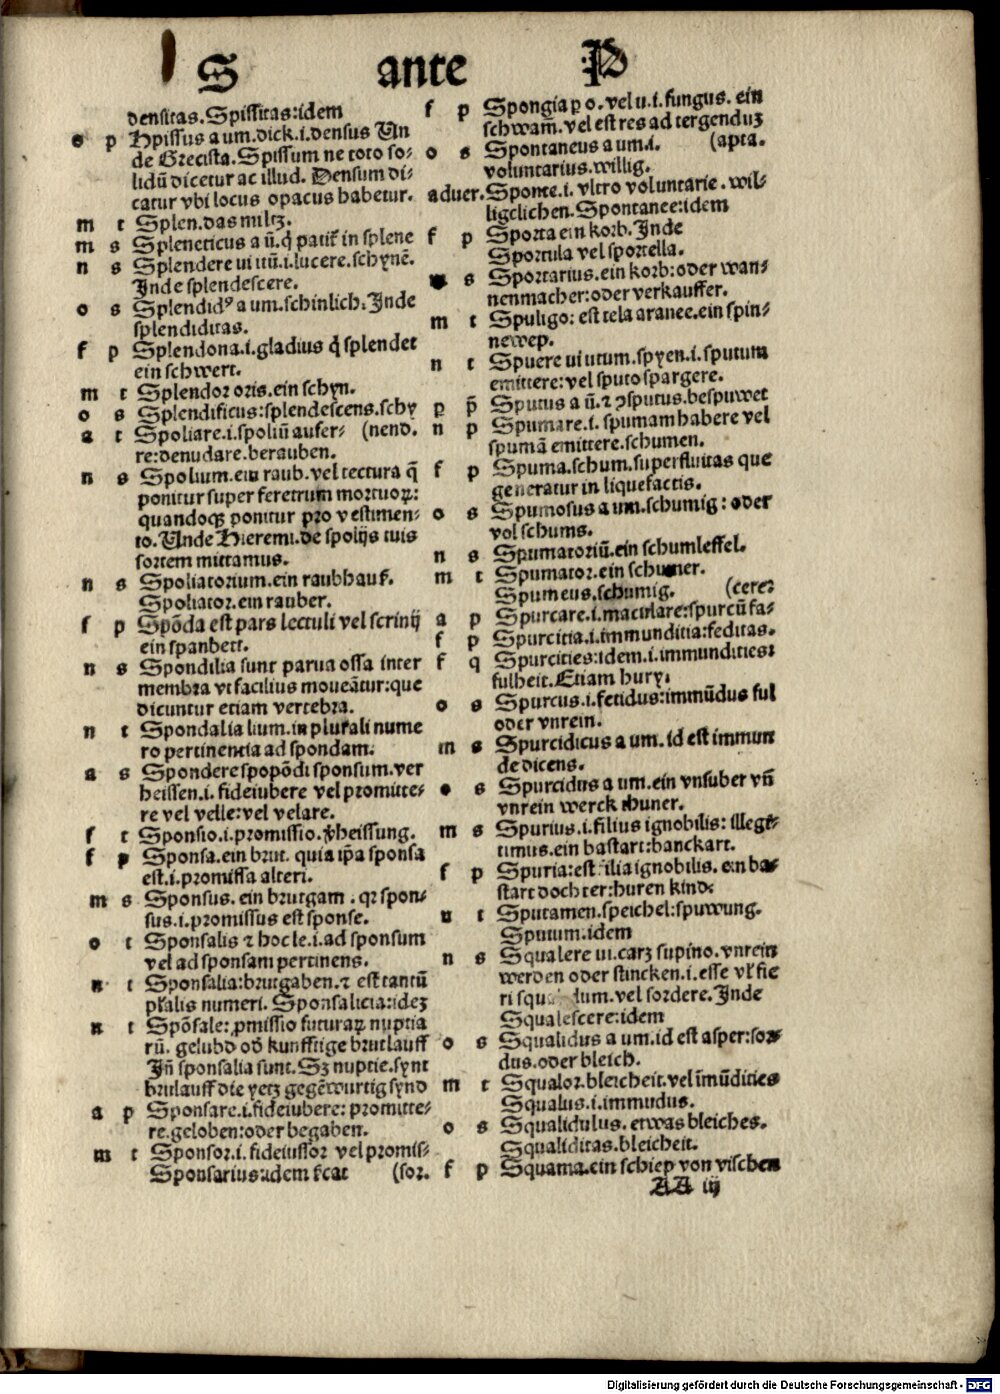 S ante P
densitas. Spissitas:idem
o p Hpissus a um. dick.i.densus Un
de Grecista. Spissum ne toto so⸗
lidū dicetur ac illud. Densum di⸗
catur vbi locus opacus habetur.
m t Splen.das miltz.
m s Spleneticus a ū.q̄ patit̄ in splene
n s Splendere ui itū.i.lucere.schynē.
Inde splendescere.
o s Splendidꝰ a um.schinlich.Inde
splendiditas.
f p Splendona.i.gladius q̄ splendet
ein schwert.
m t Splendor oris.ein schyn.
o s Splendificus:splendescens.schy
a t Spoliare.i.spoliū aufer⸗ (nend.
re:denudare.berauben.
n s Spolium.ein raub.vel tectura q̄
ponitur super feretrum mortuoꝝ:
quandoqꝫ ponitur pro vestimen⸗
to.Unde Hieremi.de spolijs tuis
sortem mittamus.
n s Spoliatorium.ein raubhauß.
Spoliator.ein rauber.
f p Spōda est pars lectuli vel scrinij
ein spanbett.
n s Spondilia sunt parua ossa inter
membra vt facilius moueātur:que
dicuntur etiam vertebra.
n t Spondalia lium.in plurali nume
ro pertinentia ad spondam.
a s Spondere spopōdi sponsum.ver
heissen.i.fideiubere vel promitte⸗
re vel velle:vel velare.
f t Sponsio.i.promissio.v̄heissung.
f p Sponsa.ein brut. quia ip̄a sponsa
est.i.promissa alteri.
m s Sponsus. ein brutgam . qꝛ spon⸗
sus.i.promissus est sponse.
o t Sponsalis ⁊ hoc le.i.ad sponsum
vel ad sponsam pertinens.
n t Sponsalia:brutgaben.⁊ est tantū
pl̄alis numeri. Sponsalicia:ideꝫ
n t Spōsale:ꝓmissio futuraꝝ nuptia
rū. gelubd od̄ kunfftige brutlauff
Iñ sponsalia sunt.Sꝫ nuptie.synt
brutlauff die yetz gegēwurtig synd
a p Sponsare.i.fideiubere: promitte⸗
re.geloben:oder begaben.
m t Sponsor.i.fideiussor vel promis⸗
Sponsarius:idem (sor.
f p Spongia ꝑ o.vel u.i.fungus. ein
schwam̄.vel est res ad tergenduꝫ
o s Spontaneus a um.i. (apta.
voluntarius.willig.
aduer.Sponte.i.vltro voluntarie.wil⸗
ligclichen.Spontanee:idem
f p Sporta ein korb.Inde
Sportula vel sportella.
m s Sportarius.ein korb:oder wan⸗
nenmacher:oder verkauffer.
m t Spuligo: est tela aranee.ein spin⸗
newep.
n t Spuere ui utum.spyen.i.sputum
emittere:vel sputo spargere.
p p̄ Sputus a ū.⁊ ꝯsputus.bespuwet
n p Spumare.i.spumam habere vel
spumā emittere.schumen.
f p Spuma.schum.superfluitas que
generatur in liquefactis.
o s Spumosus a um.schumig:oder
vol schums.
n s Spumatoriū.ein schumleffel.
m t Spumator.ein schumer.
Spumeus.schumig. (cere⸗
a p Spurcare.i.maculare:spurcū fa⸗
f p Spurcitia.i.immunditia:feditas.
f q Spurcities:idem.i.immundities:
fulheit.Etiam hury.
o s Spurcus.i.fetidus:immūdus ful
oder vnrein.
m s Spurcidicus a um. id est immun
de dicens.
o s Spurcidus a um.ein vnsuber vñ
vnrein werck thuner.
m s Spurius.i.filius ignobilis: illegi⸗
timus.ein bastart:banckart.
f p Spuria:est filia ignobilis. ein ba⸗
start dochter:huren kind.
n t Sputamen.speichel:spuwung.
Sputum.idem
n s Squalere ui.carꝫ supino.vnrein
werden oder stincken.i.esse vl̄ fie
ri squalidum.vel sordere.Inde
Squalescere:idem
o s Squalidus a um.id est asper:sor⸗
dus.oder bleich.
m t Squalor.bleicheit.vel īmūdities
Squalus.i.immudus.
o s Squalidulus. etwas bleiches.
Squaliditas.bleicheit.
f p Squama.ein schiep von vischen
AA iij
Digitalisierung gefördert durch die Deutsche Forschungsgemeinschaft - DFG